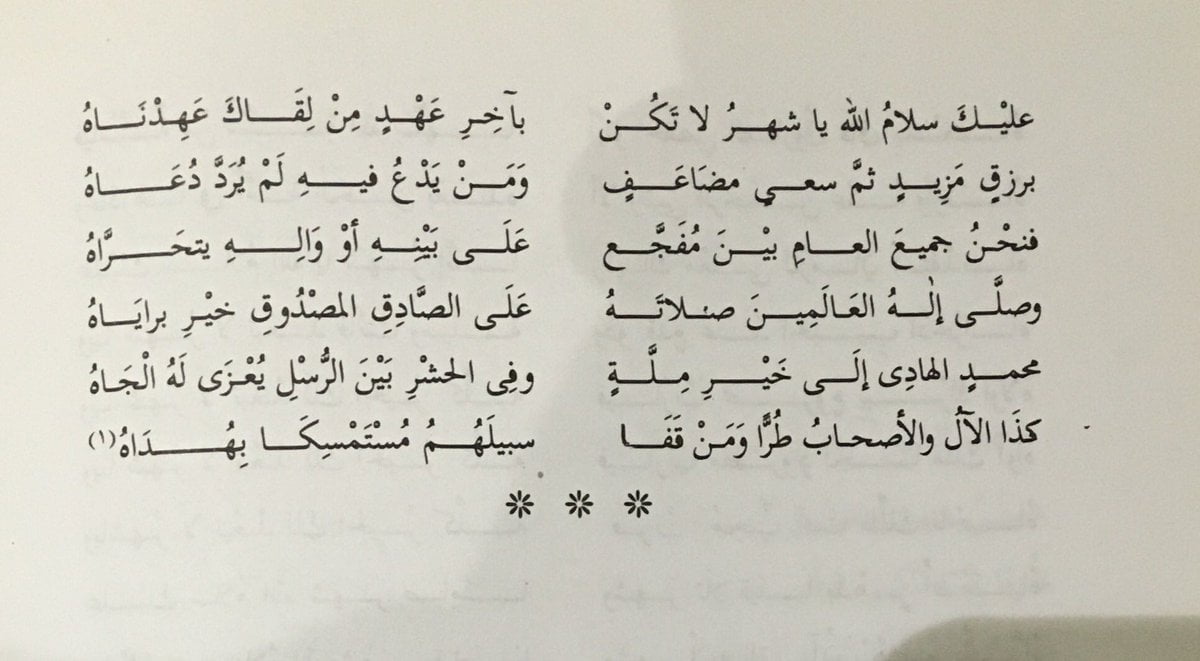 عليْكَ سلامُ الله يا شهرُ لا تَكُنْ بآخِرِ عَهْدٍ مِنْ لِقَاكَ عَهِدْنَاهُ
برزقٍ مَزِيدٍ ثمَّ سعيٍ مضَاعَفٍ وَمَنْ يَدْعُ فيهِ لَمْ يُرَدَّ دُعَاهُ
فنحْنُ جميعَ العامِ بيْنَ مُفَجَّعٍ عَلَى بَيْنِهِ أوْ وَالِهِ يتحَرَّاهُ
وصلَّى إلٰهُ العَالَمِينَ صلاتَهُ عَلَى الصَّادِقِ المصْدُوقِ خيْرِ برايَاهُ
محمدٍ الهادِى إلَى خَيْرِ مِلَّةٍ وفِى الحشْرِ بَيْنَ الرُّسْلِ يُعْزَى لَهُ الْجَاهُ
كذَا الآلُ والأصحابُ طُرًّا وَمَنْ قَفَا سبيلَهُمُ مُسْتَمْسِكَا بِهُدَاهُ(١)